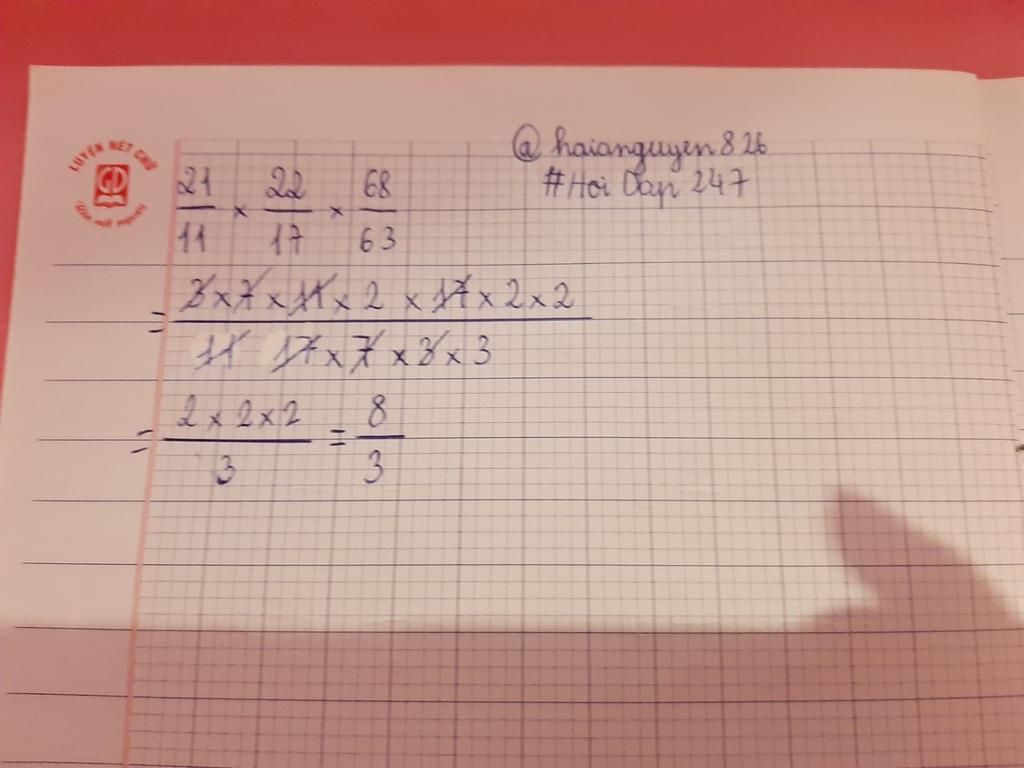 LUYỆN NÉT CHỮ
GD
@haianguyen826
#Hoi Dap 247
21/11 × 22/17 × 68/63
= 3 × 7 × 11 × 2 × 17 × 2 × 2 / 11 17 × 7 × 3 × 3
= 2 × 2 × 2 / 3 = 8/3